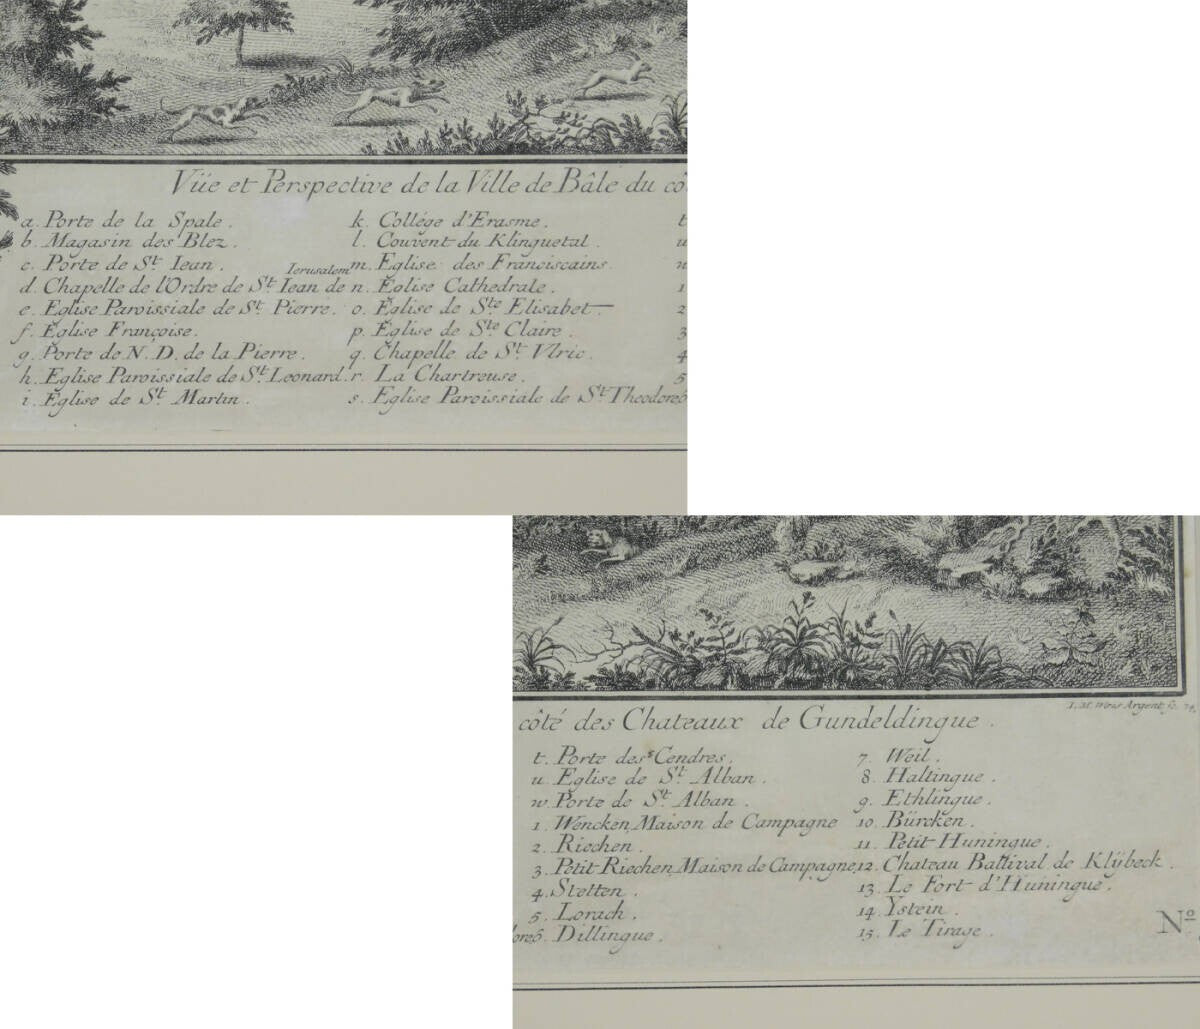 Vüe et Perspective de la Ville de Bâle du cô
a. Porte de la Spale.
b. Magasin des Blez.
c. Porte de St. Iean.
d. Chapelle de l'Ordre de St. Iean de Ierusalem
e. Eglise Paroissiale de St. Pierre.
f. Eglise Françoise.
g. Porte de N. D. de la Pierre.
h. Eglise Paroissiale de St. Leonard.
i. Eglise de St. Martin.
k. Collége d'Erasme.
l. Couvent du Klinguetal.
m. Eglise des Franciscains.
n. Eglise Cathedrale.
o. Eglise de Ste. Elisabet
p. Eglise de Ste. Claire.
q. Chapelle de St. Vlric.
r. La Chartreuse.
s. Eglise Paroissiale de St. Theodore
t
u
1
2
3
4
5
6
côté des Chateaux de Gundeldingue.
t. Porte des Cendres.
u. Eglise de St. Alban.
w. Porte de St. Alban.
1. Wencken, Maison de Campagne
2. Riechen.
3. Petit Riechen, Maison de Campagne
4. Stetten.
5. Lorach.
6. Dillingue.
7. Weil.
8. Haltingue.
9. Ethlingue.
10. Bürcken.
11. Petit Huningue.
12. Chateau Ballival de Klÿbeck.
13. Le Fort d'Huningue.
14. Ystein.
15. Le Tirage.
No